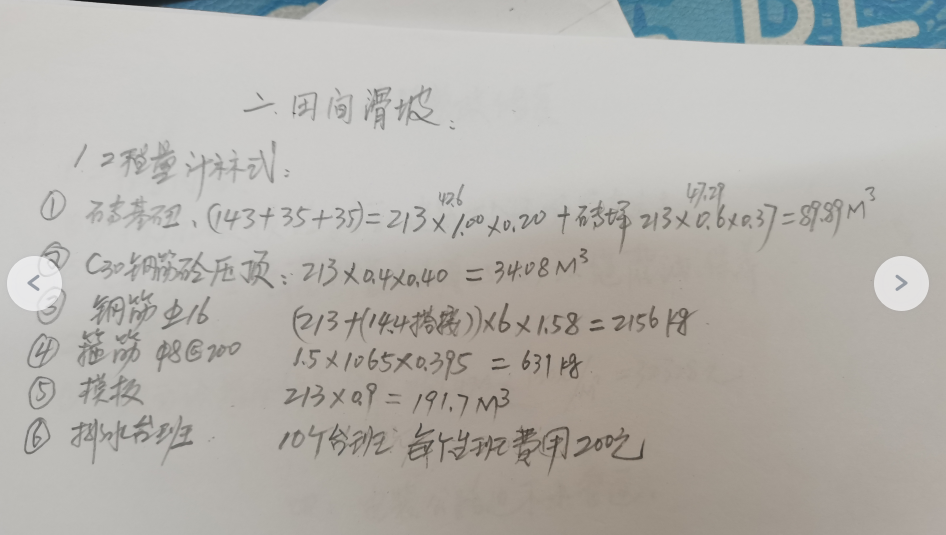 二.田间滑坡:
1.工程量计算式:
① 砖基础、(143+35+35)=213×1.00×0.20+砖埂213×0.6×0.37=89.89M³
42.6 47.29
② C30钢筋砼压顶:213×0.4×0.40=34.08M³
③ 钢筋±16 (213+(14.4搭接))×6×1.58=2156kg
④ 箍筋φ8@200 1.5×1065×0.395=631kg
⑤ 模板 213×0.9=191.7M³
⑥ 排水台班 10个台班 每个台班费用200元
BE